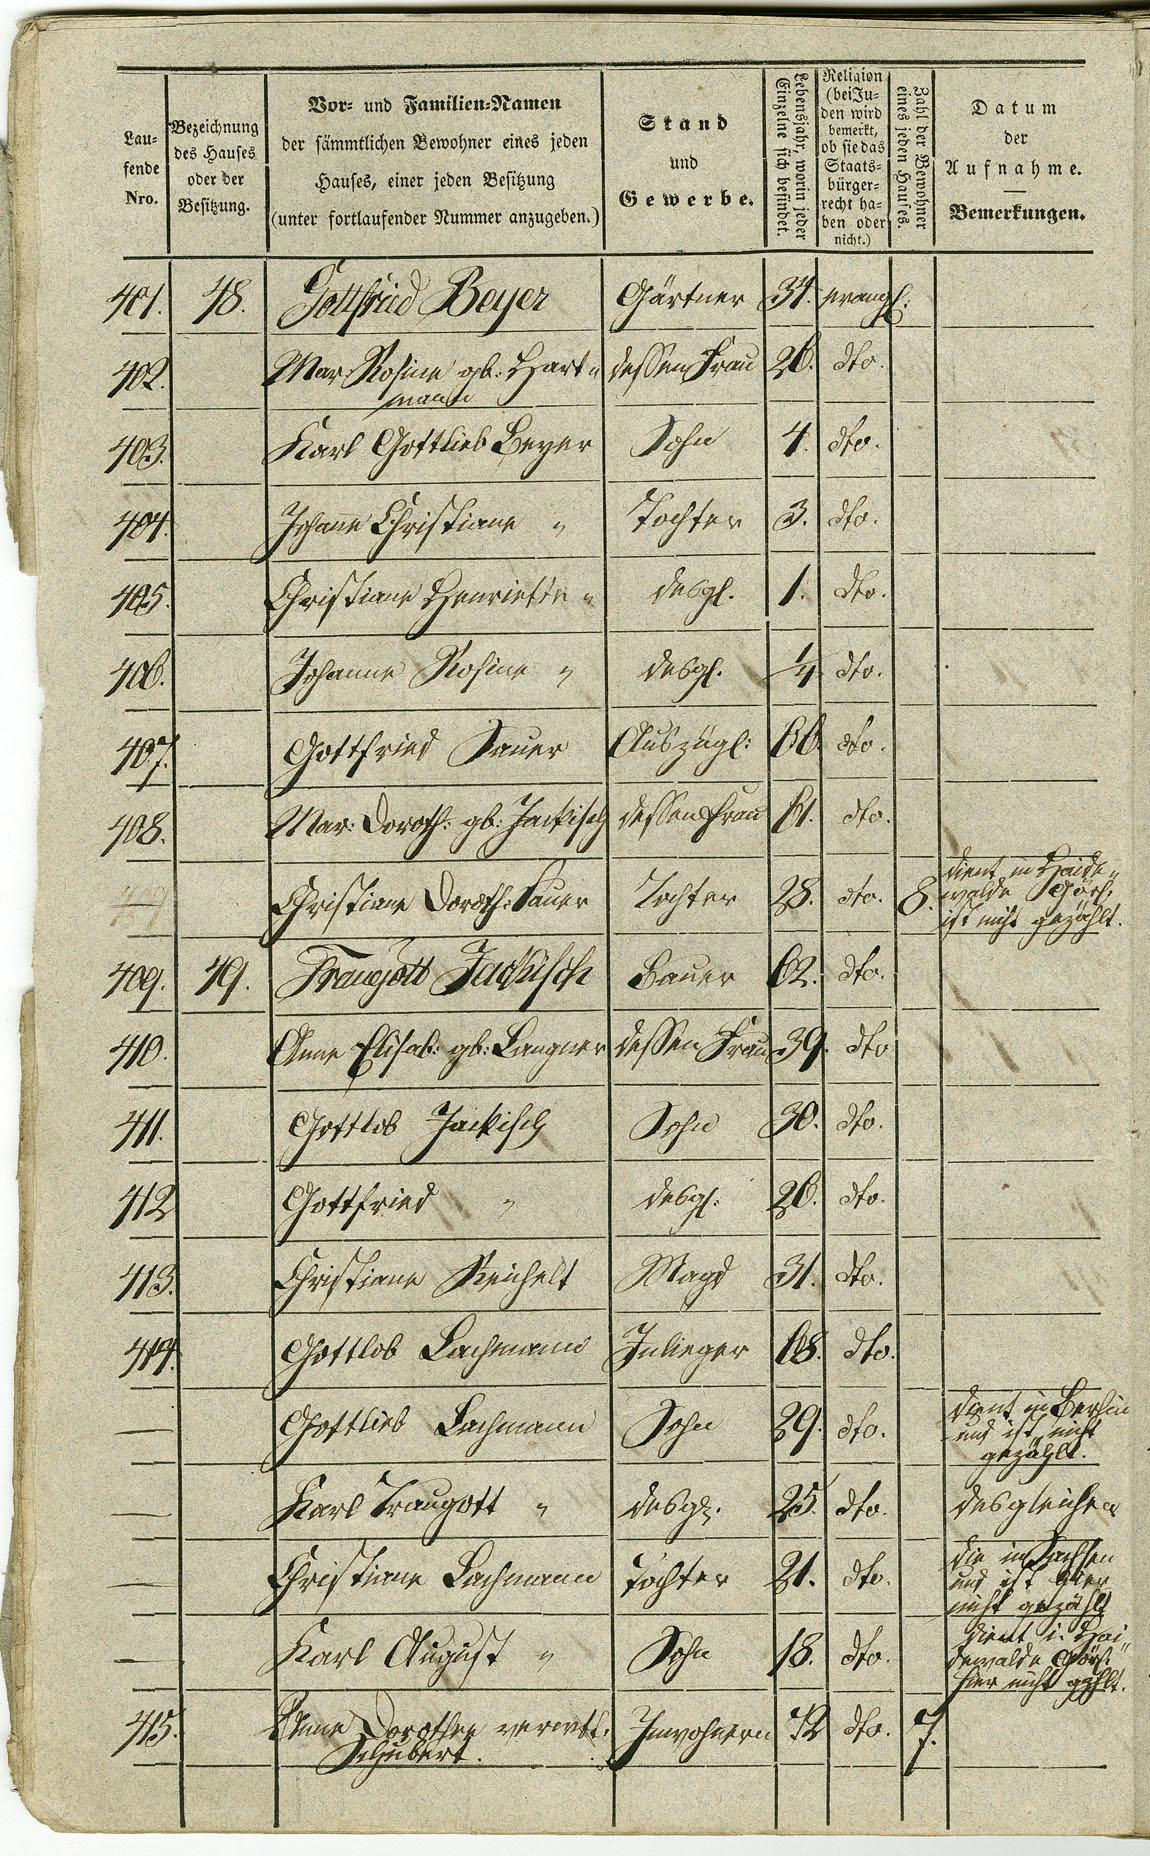 Lau=
fende
Nro.
Bezeichnung
des Hauses
oder der
Besitzung.
Vor= und Familien=Namen
der sämmtlichen Bewohner eines jeden
Hauses, einer jeden Besitzung
(unter fortlaufender Nummer anzugeben.)
Stand
und
Gewerbe.
Lebensjahr, worin jeder
Einzelne sich befindet.
Religion
(bei Ju=
den wird
bemerkt,
ob sie das
Staats=
bürger=
recht ha=
ben oder
nicht.)
Zahl der Bewohner
eines jeden Hauses.
Datum
der
Aufnahme.
Bemerkungen.
401. 48. Gottfried Beyer Gärtner 34. evangl.
402. Mar. Rosine gb: Hart= dessen Frau 26. dto.
mann
403. Karl Gottlieb Beyer Sohn 4. dto.
404. Johane Christiane " Tochter 3. dto.
405. Christiane Henriette " desgl. 1. dto.
406. Johanne Rosine " desgl. 1/4 dto.
407. Gottfried Sauer Auszügl: 66 dto.
408. Mar: Doroth: gb: Jackisch dessen Frau 61. dto.
Christiane Doroth: Sauer Tochter 28. dto. 8. dient in Haide=
walde Görl:
ist nicht gezählt.
409. 49. Traugott Jackisch Bauer 62. dto.
410. Anne Elisab: gb: Langner dessen Frau 39. dto
411. Gottlob Jackisch Sohn 30. dto.
412 Gottfried " desgl. 26. dto.
413. Christiane Reichelt Magd 31. dto.
414. Gottlob Lachmann Inlieger 68. dto.
— Gottlieb Lachmann Sohn 29. dto. dient in Berlin
und ist nicht
gezählt.
— Karl Traugott " desgl. 25. dto. desgleichen
— Christiane Lachmann Tochter 21. dto. die in Sachsen
und ist hier
nicht gezählt
— Karl August " Sohn 18. dto. dient i. Hai=
dewalde Görl:
hier nicht gzhlt.
415. Anne Dorothee verwtt. Inwohnern 72 dto. 7.
Schubert.